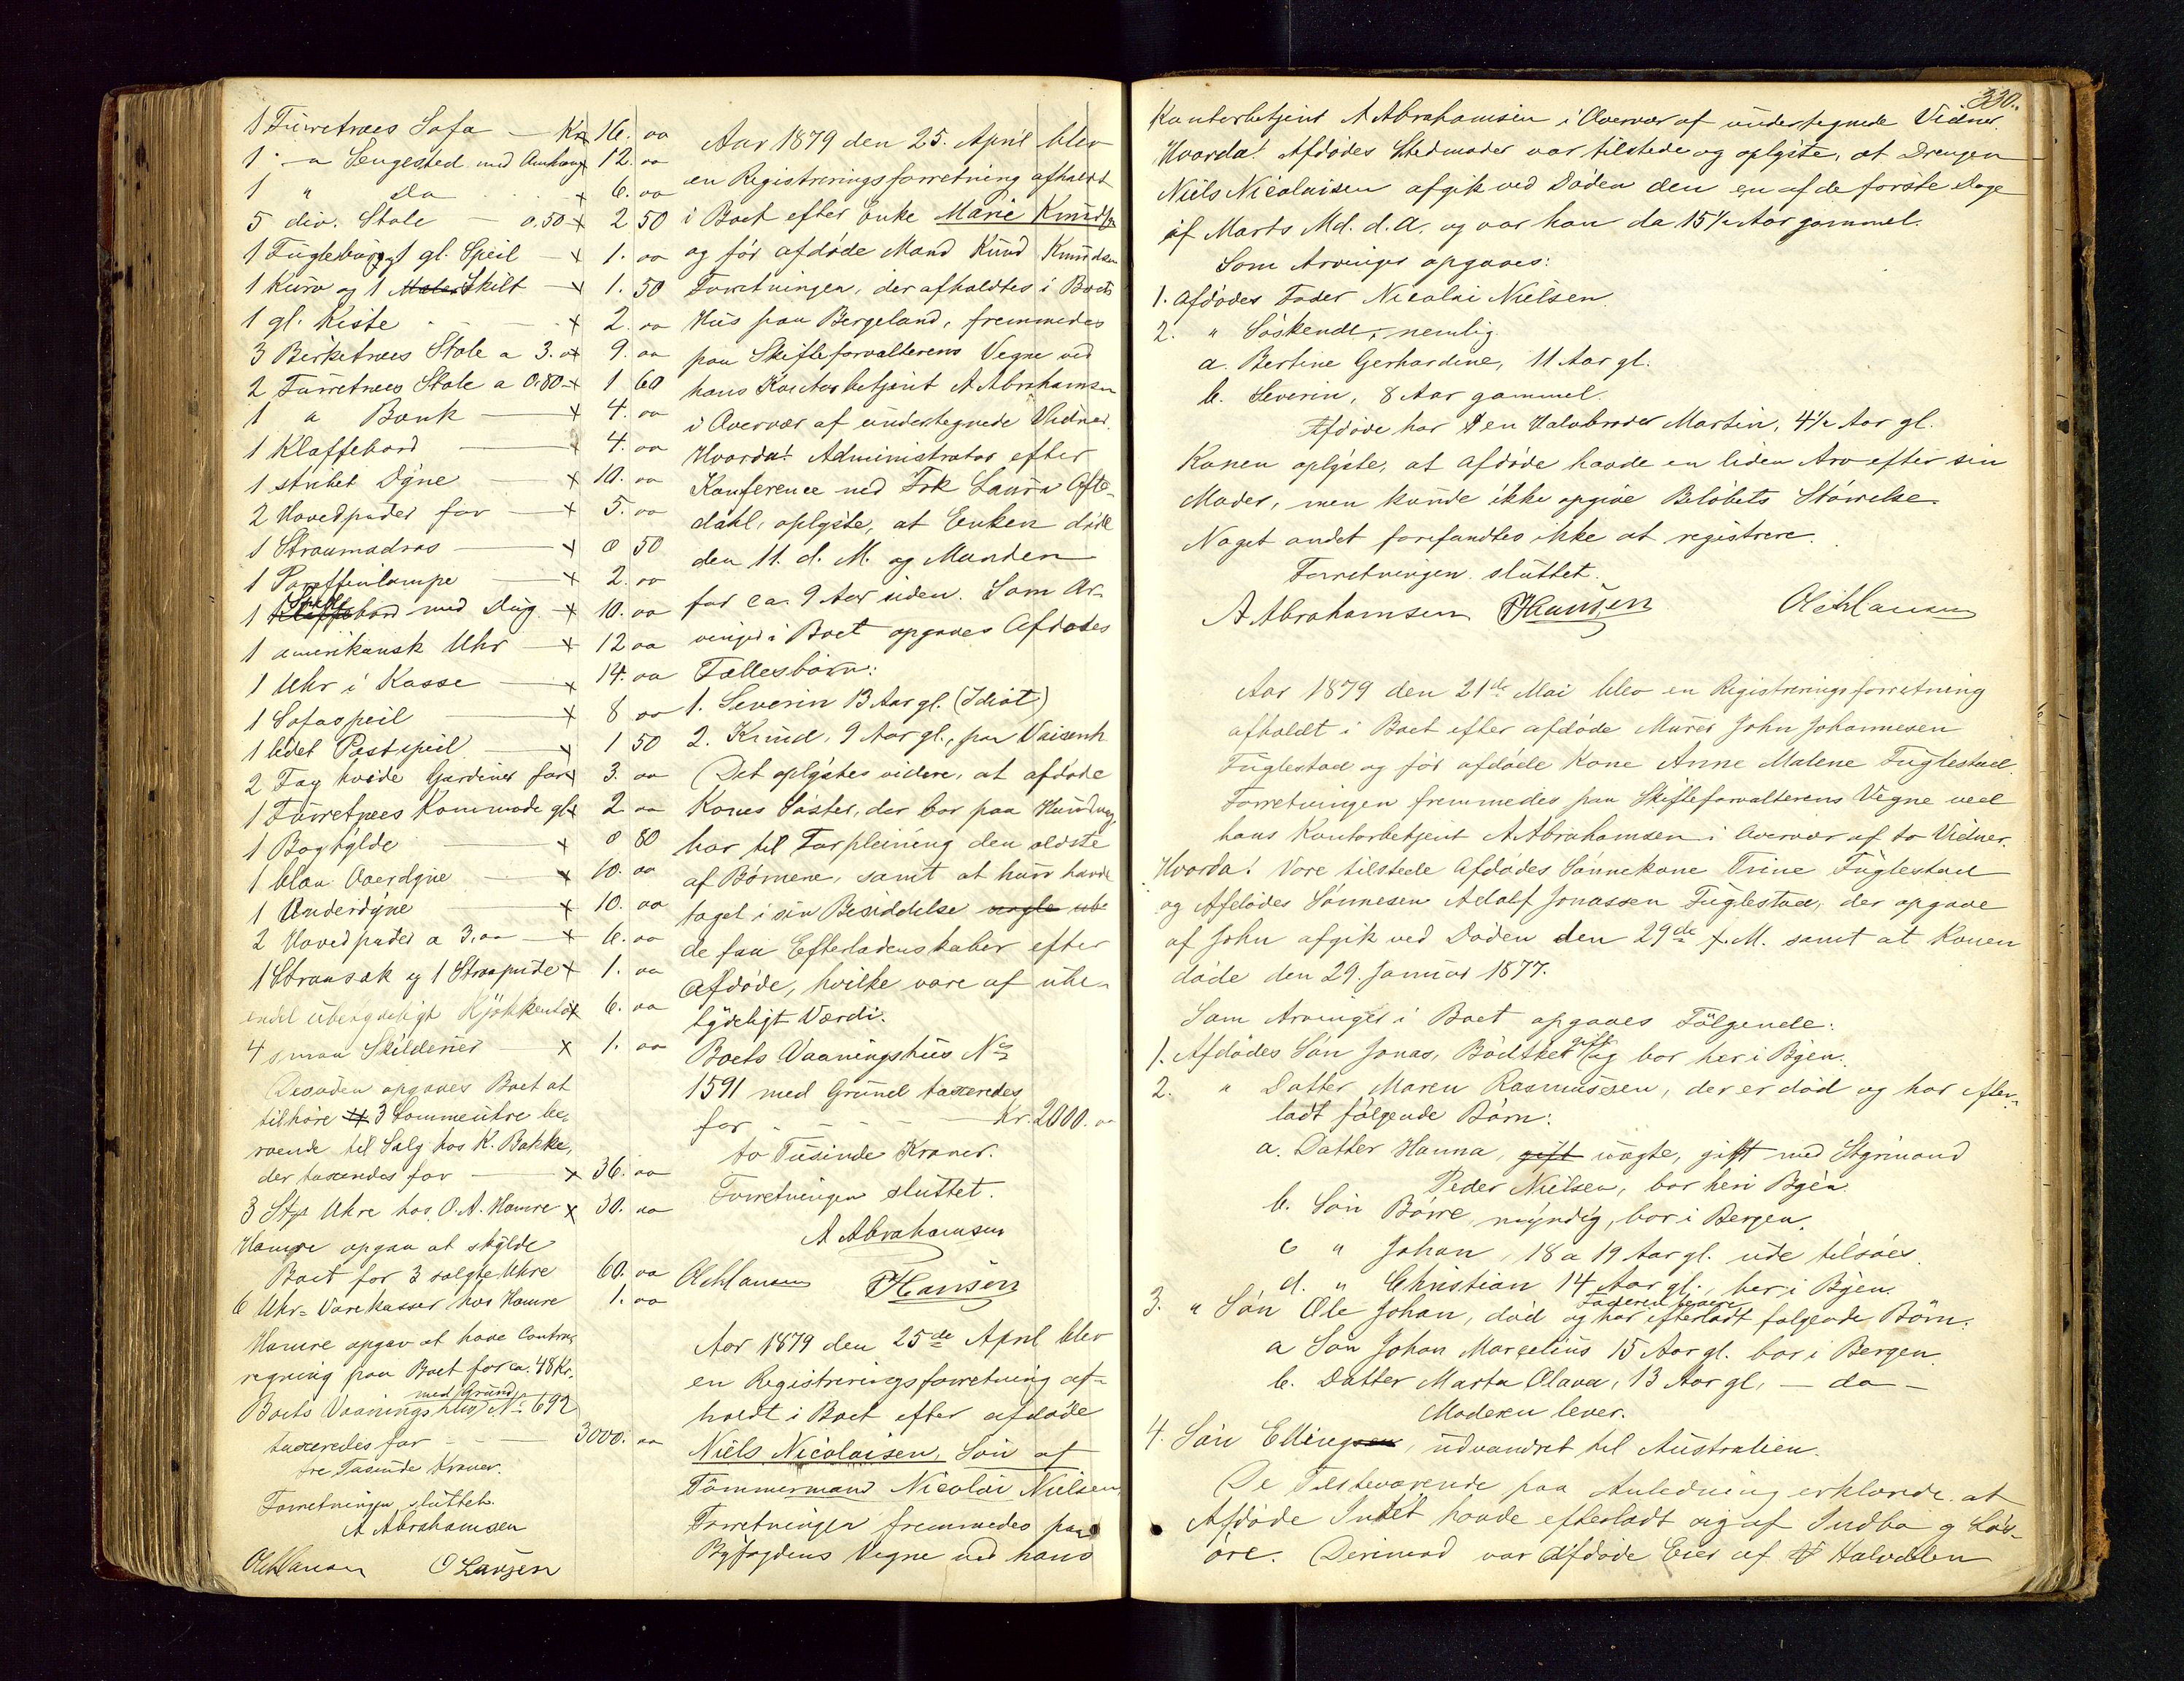 1 Furretræes Sofa — Kr 16. 00
1 " a Sengested med Omhæng x 12. 00
1 " Do x 6. 00
5 div. Stole — 0.50 x 2 50
1 Fuglebuur og 1 gl. Speil — x 1. 00
1 Kurv og 1 Maler Skilt — x 1. 50
1 gl. Kiste x 2. 00
3 Birketræes Stole a 3.00 x 9. 00
2 Furretræes Stole a 0.80 x 1 60
1 a Bænk — x 4. 00
1 Klaffebord — x 4. 00
1 stribet Dyne — x 10. 00
2 Hovedpuder for — x 5. 00
1 Straamadras — x 0 50
1 Paraffinlampe — x 2. 00
1 Klaffebord med Dug x 10. 00
1 amerikansk Uhr — x 12 00
1 Uhr i Kasse — x 14. 00
1 Sofaspeil — x 8 00
1 lidet Postspeil — x 1 50
2 Fag hvide Gardiner for x 3. 00
1 Furretræes Kommode gl x 2 00
1 Boghylde — x 0 80
1 blaa Overdyne — x 10. 00
1 Underdyne — x 10. 00
2 Hovedpuder a 3.00 — x 6. 00
1 Straasæk og 1 Straapude x 1. 00
endel ubetydeligt Kjøkkentøi x 6. 00
4 smaa Skilderier — x 1. 00
Desuden opgaves Boet at
tilhøre 3 Lommeuhre be-
roende til Salg hos K. Bakke,
der taxeredes for — x 36. 00
3 Stkr Uhre hos O. A. Hamre x 30. 00
Hamre opgav at skylde
Boet for 3 solgte Uhre 60. 00
6 Uhr-Varekasser hos Hamre 1. 00
Hamre opgav at have Contra-
regning paa Boet for ca. 48 Kr.
med Grund
Boets Vaaningshuus No 692
taxeredes for — 3000. 00
tre Tusinde Kroner.
Forretningen sluttet.
A Abrahamsen
O Larsen
Aar 1879 den 25. April blev
en Registreringsforretning afholdt
i Boet efter Enke Marie Knudsen
og før afdøde Mand Knud Knudsen
Forretningen, der afholdtes i Boets
Hus paa Bergeland, fremmedes
paa Skifteforvalterens Vegne ved
hans Kontorbetjent A Abrahamsen
i Overvær af undertegnede Vidner.
Hvorda! Administrator efter
Konference med Frk Laura Ofte-
dahl, oplyste, at Enken døde
den 11. d. M. og Manden
for ca. 9 Aar siden. Som Ar-
vinger i Boet opgaves Afdødes
Fællesbørn:
1. Severin 13 Aar gl. (Idiot)
2. Knud, 9 Aar gl., paa Vaisenh
Det oplystes videre, at afdøde
Kones Søster, der bor paa Hundvaag,
har til Forpleining den ældste
af Børnene, samt at hun havde
taget i sin Besiddelse nogle ube
de faa Efterladenskaber efter
Afdøde, hvilke vare af ube-
tydeligt Værdi.
Boets Vaaningshus No
1591 med Grund taxeredes
for — Kr. 2000. 00
to Tusinde Kroner.
Forretningen sluttet.
A Abrahamsen
Hansen
Aar 1879 den 25de April blev
en Registreringsforretning af-
holdt i Boet efter afdøde
Niels Nicolaisen, Søn af
Tømmermand Nicolai Nielsen
Forretningen fremmedes paa
Byfogdens Vegne ved hans
330.
Kontorbetjent A Abrahamsen i Overvær af undertegnede Vidner.
Hvorda! Afdødes Stedmoder var tilstede og oplyste, at Drengen
Niels Nicolaisen afgik ved Døden den en af de første Dage
af Marts Md. d. A. og var han da 15½ Aar gammel.
Som Arvinger opgaves:
1. Afdødes Fader Nicolai Nielsen
2. " Søskende, nemlig
a. Bertine Gerhardine, 11 Aar gl.
b. Severin, 8 Aar gammel.
Afdøde har 1 en Halvbroder Martin, 4½ Aar gl.
Konen oplyste, at afdøde havde en liden Arv efter sin
Moder, men kunde ikke opgive Beløbets Størrelse.
Noget andet forefandtes ikke at registrere.
Forretningen sluttet.
A Abrahamsen Hansen
Aar 1879 den 21de Mai blev en Registreringsforretning
afholdt i Boet efter afdøde Murer John Johannesen
Fuglestad og før afdøde Kone Anne Malene Fuglestad.
Forretningen fremmedes paa Skifteforvalterens Vegne ved
hans Kontorbetjent A Abrahamsen i Overvær af to Vidner.
Hvorda! Vare tilstede Afdødes Sønnekone Trine Fuglestad
og Afdødes Sønnesøn Adolf Jonassen Fuglestad, der opgave
af John afgik ved Døden den 29de f. M. samt at Konen
døde den 29. Januar 1877.
Som Arvinger i Boet opgaves Følgende:
1. Afdødes Søn Jonas, Bødtker gift og bor her i Byen.
2. " Datter Maren Rasmussen, der er død og har efter-
ladt følgende Børn:
a. Datter Hanna, gift uægte, gift med Styrmand
Peder Nielsen, bor her i Byen
b. Søn Børre myndig, bor i Bergen.
c " Johan, 18 a 19 Aar gl. ude tilsøes.
d. " Christian 14 Aar gl., her i Byen.
3. " Søn Ole Johan, død og har efterladt følgende Børn:
a Søn Johan Marselius 15 Aar gl. bor i Bergen.
b. Datter Marta Olava, 13 Aar gl, — do —
Moderen lever.
4. Søn Ellingsen, udvandret til Australien.
De Tilstedeværende paa Anledning erklærede at
Afdøde Intet havde efterladt sig af Indbo og Løs-
øre. Derimod var Afdøde Eier af Halvdelen